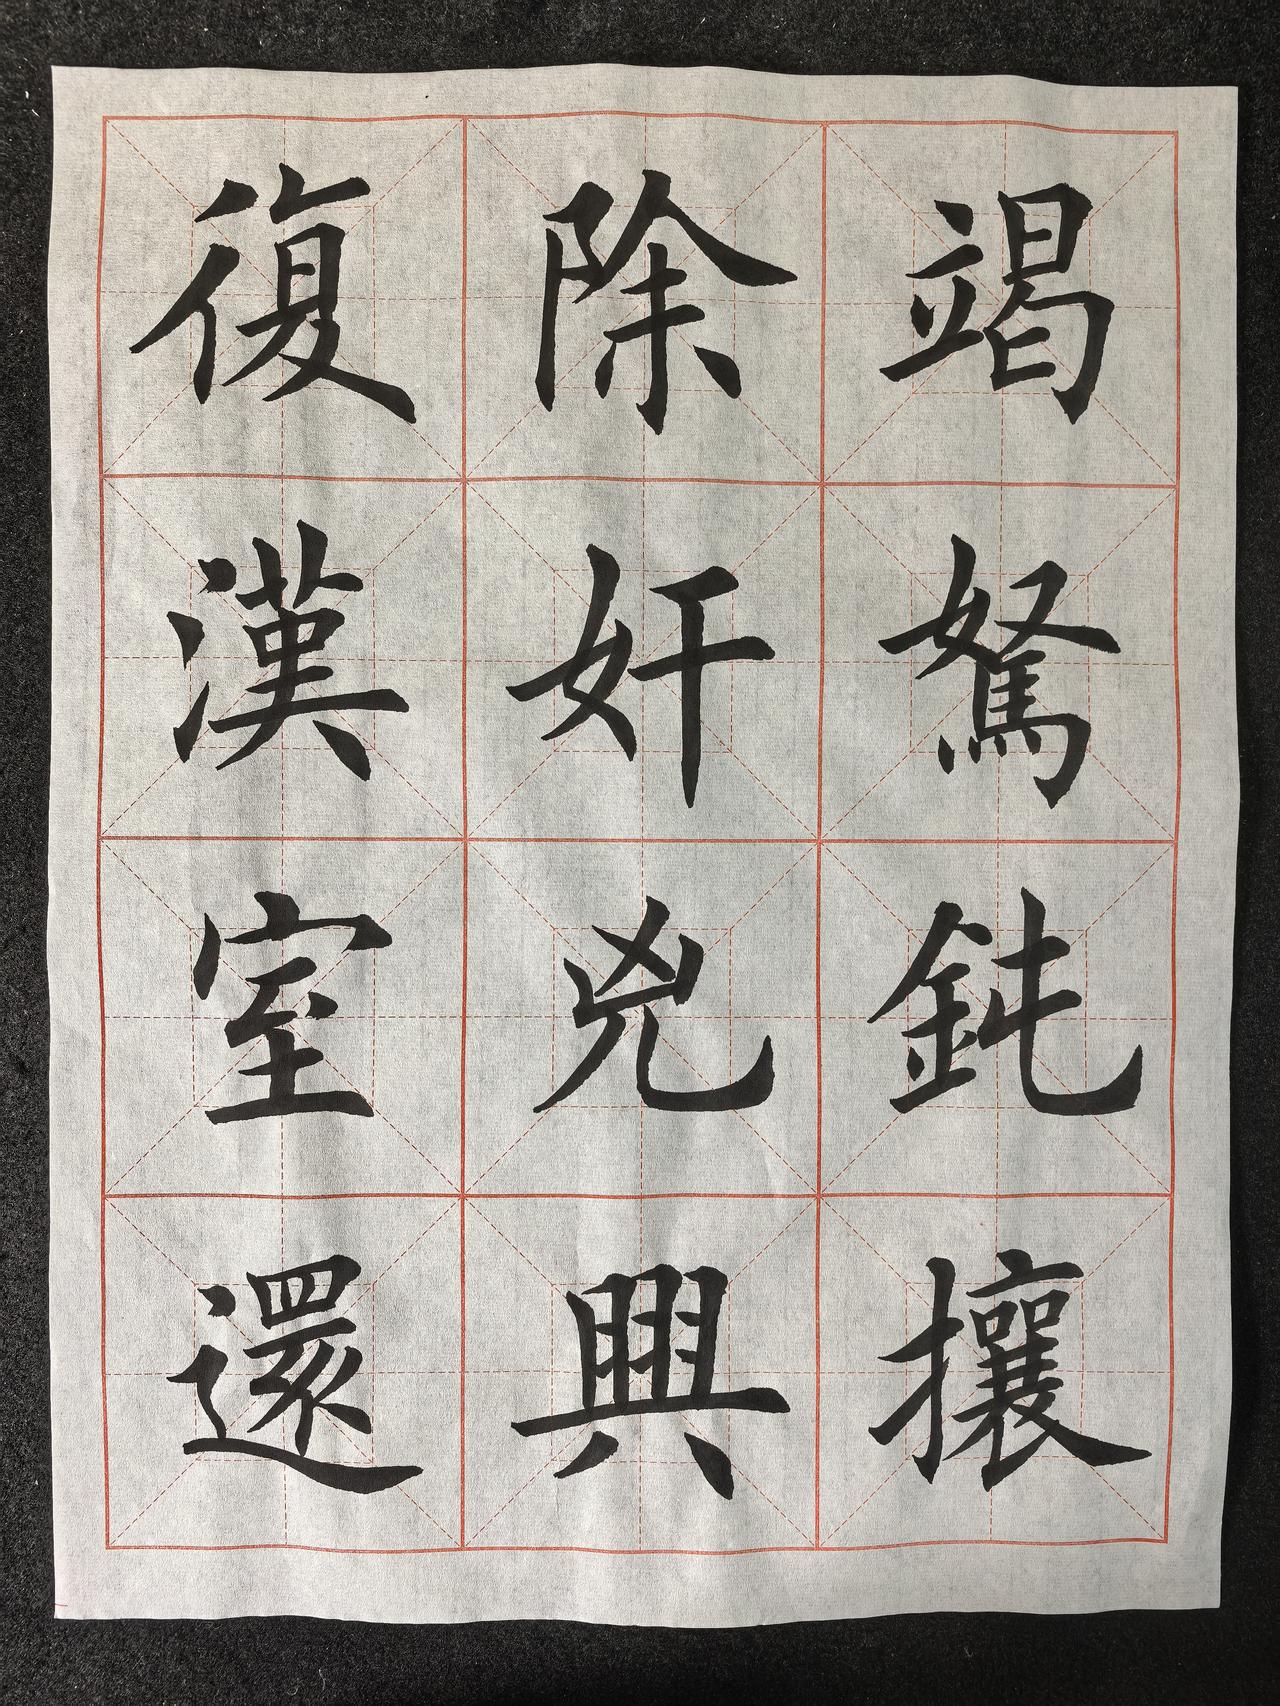 竭駑鈍攘
除奸兇興
復漢室還